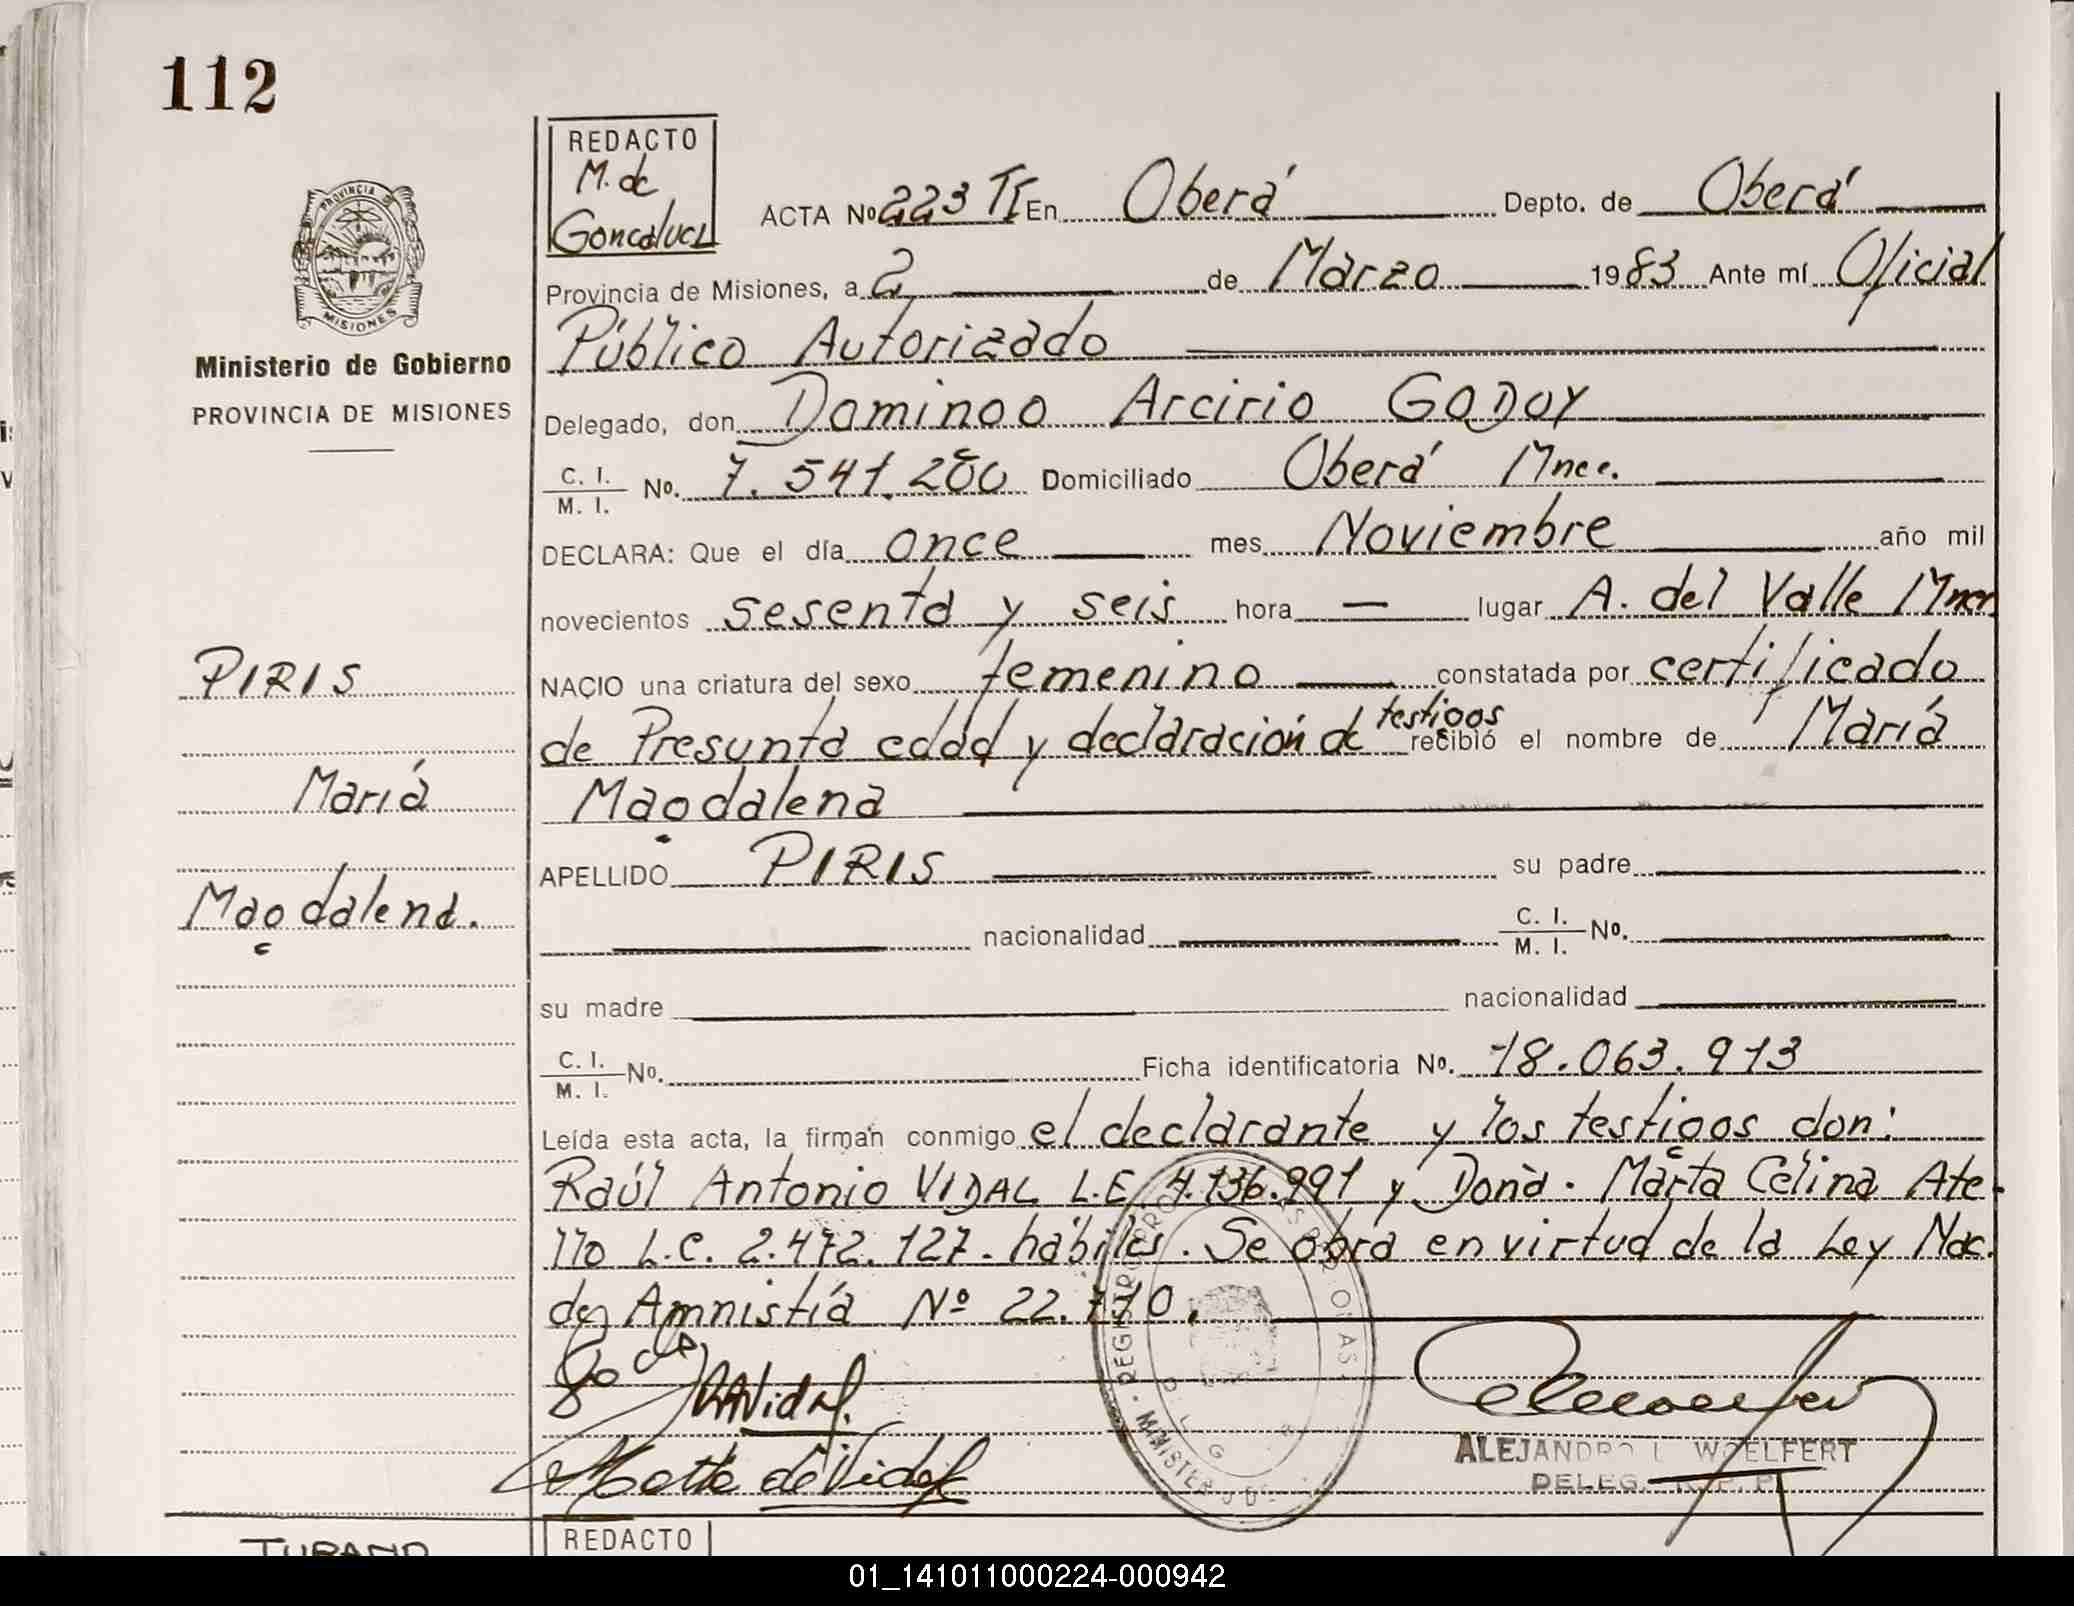 112
REDACTO
M. de
Goncalvez
PROVINCIA
MISIONES
Ministerio de Gobierno
PROVINCIA DE MISIONES
ACTA Nº 223 TI En Oberá Depto. de Oberá
Provincia de Misiones, a 2 de Marzo 1983 Ante mí Oficial
Público Autorizado
Delegado, don Domingo Arcirio GODOY
C. I. / M. I. No. 7.541.200 Domiciliado Oberá Mnes.
DECLARA: Que el día once mes Noviembre año mil
novecientos sesenta y seis hora — lugar A. del Valle Mnes
PIRIS
NACIO una criatura del sexo femenino constatada por certificado
de Presunta edad y declaración de testigos recibió el nombre de María
María
Magdalena
APELLIDO PIRIS su padre
Magdalena.
nacionalidad C. I. / M. I. No.
su madre nacionalidad
C. I. / M. I. No. Ficha identificatoria No. 18.063.913
Leída esta acta, la firman conmigo el declarante y los testigos don:
Raúl Antonio VIDAL L.E. 4.136.991 y Doña. Marta Celina Ate-
llo L.C. 2.472.127. hábiles. Se obra en virtud de la Ley Nac.
de Amnistía Nº 22.770.
RAVidal.
de Vidal
ALEJANDRO L. WOELFERT
DELEG. R. P. P.
REDACTO
01_141011000224-000942